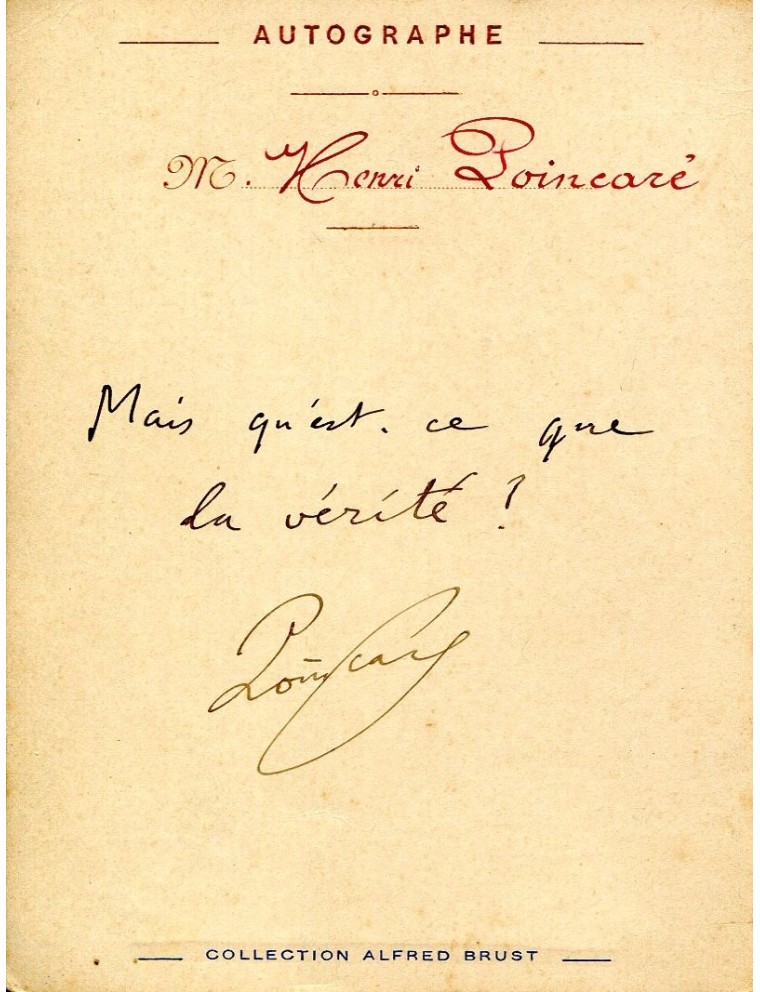 AUTOGRAPHE
M. Henri Poincaré
Mais qu'est-ce que
la vérité ?
Poincaré
COLLECTION ALFRED BRUST